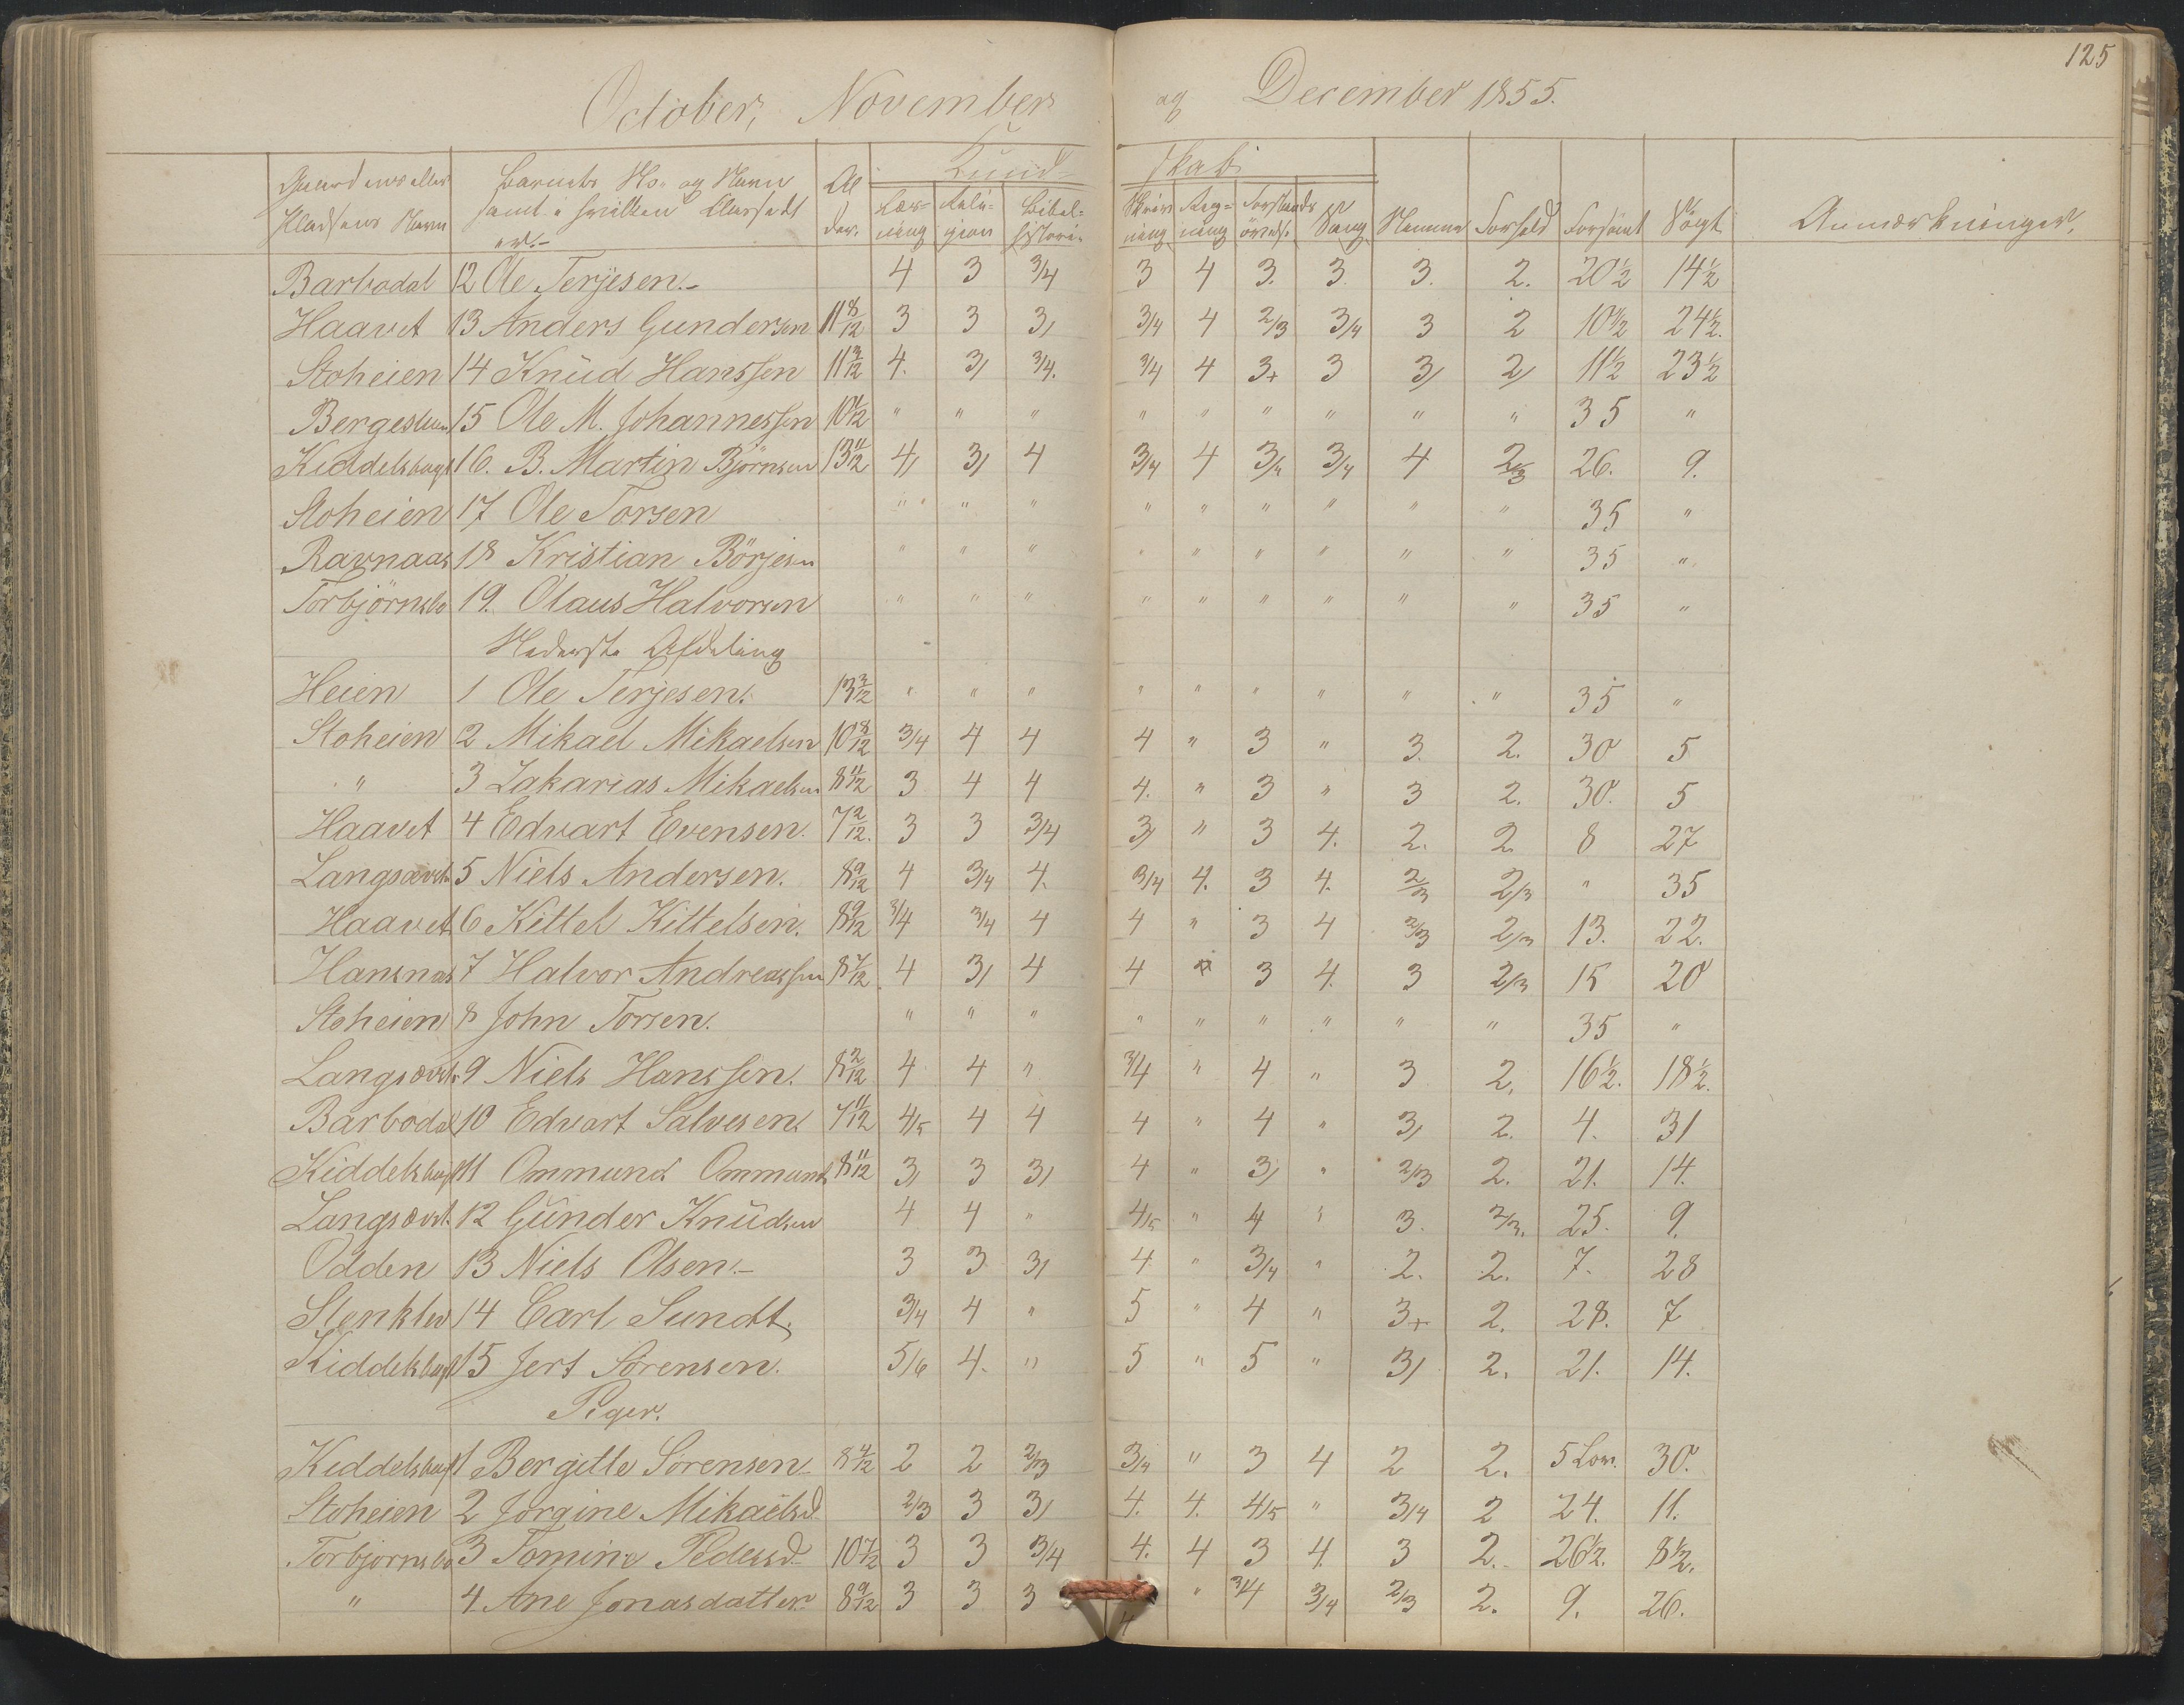 125
October, November og December 1855.
Gaardens eller Pladsens Navn | Barnets No. og Navn samt i hvilken Classe det er.- | Alder. | Kundskabs
Læsning | Religion | Bibelhistorie | Skrivning | Regning | Forstandsøvelse | Sang | Nemme | Forhold | Forsømt | Søgt | Anmærkninger.
Barbodal 12 Ole Terjesen.- 4 3 3/4 3 4 3. 3. 3. 2. 20½ 14½
Haavet 13 Anders Gundersen 11 8/12 3 3 3/ 3/4 4 2/3 3/4 3 2 10½ 24½.
Stoheien 14 Knüd Hanssen 11 3/12 4. 3/ 3/4. 3/4 4 3+ 3 3/ 2/ 11½ 23½
15 Ole M. Johannessen " " " " " " " " " 35 "
16. B. Martin Björnsen 13 11/12 4/ 3/ 4 3/4 4 3/4 3/4 4 2/3 26. 9.
Stoheien 17 Ole Torsen " " " " " " " " " 35 "
Ravnaas 18 Kristian Börjesn " " " " " " " " " 35 "
Torbjörnsbo 19. Olaus Halvorsen " " " " " " " " " 35 "
Nederste Afdeling
Heien 1 Ole Terjesen. 13 3/12 " " " " " " " " " 35 "
Stoheien 2 Mikael Mikaelsen 10 8/12 3/4 4 4 4 " 3 " 3. 2. 30 5
" 3 Zakarias Mikaelsen 8 11/12 3 4 4 4. " 3 " 3 2. 30. 5
Haavet 4 Edvart Evensen. 7 2/12. 3 3 3/4 3/ " 3 4. 2. 2. 8 27
5 Niels Andersen. 8 9/12 4 3/4 4. 3/4 4. 3 4. 2/3 2/3 " 35
Haavet 6 Kittel Kittelsen. 8 9/12 3/4 3/4 4 4 " 3 4 2/3 2/3 13. 22.
Hansnas 7 Halvor Andreassen 8 7/12 4 3/ 4 4 " 3 4. 3 2/3 15 20
Stoheien 8 John Torsen. " " " " " " " " " 35 "
9 Niels Hanssen. 8 2/12 4 4 " 3/4 " 4 " 3 2. 16½. 18½.
Barbodal 10 Edvart Salvesen. 7 11/12 4/5 4 4 4 " 4 " 3/ 2. 4. 31
11 Ommund Ommunds 8 11/12 3/ 3 3/ 4 " 3/ " 2/3 2. 21. 14.
12 Günder Knüdsen 4 4 " 4/5 " 4 " 3. 2/3. 25. 9.
Odden 13 Niels Olsen.- 3 3 3/ 4 " 3/4 " 2. 2. 7. 28
Stenklev 14 Carl Sundt. 3/4 4 " 5 " 4 " 3+ 2. 28. 7
15 Jert Sörensen. 5/6 4. " 5 " 5 " 3/ 2. 21. 14.
Piger.
1 Bergitte Sörensen 8 4/12 2 2 2/3 3/4 " 3 4 2 2. 5 Lov. 30.
Stoheien 2 Jörgine Mikaelsd. 2/3 3 3/ 4. 4. 4/5 " 3/4 2 24. 11.
Torbjörnsbo 3 Tomine Pedersd. 10 7/12 3 3 3/4 4. 4 3 4. 3 2. 26½. 8½.
" 4 Ane Jonasdatter 8 9/12 3 3 3 4 " 3/4 3/4 2/3 2. 9. 26.